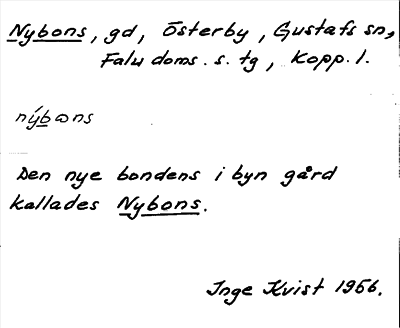 Nybons, gd, Österby, Gustafs sn,
Falu doms. s. tg, Kopp. l.
nýbɷns
Den nye bondens i byn gård
kallades Nybons.
Inge Kvist 1956.